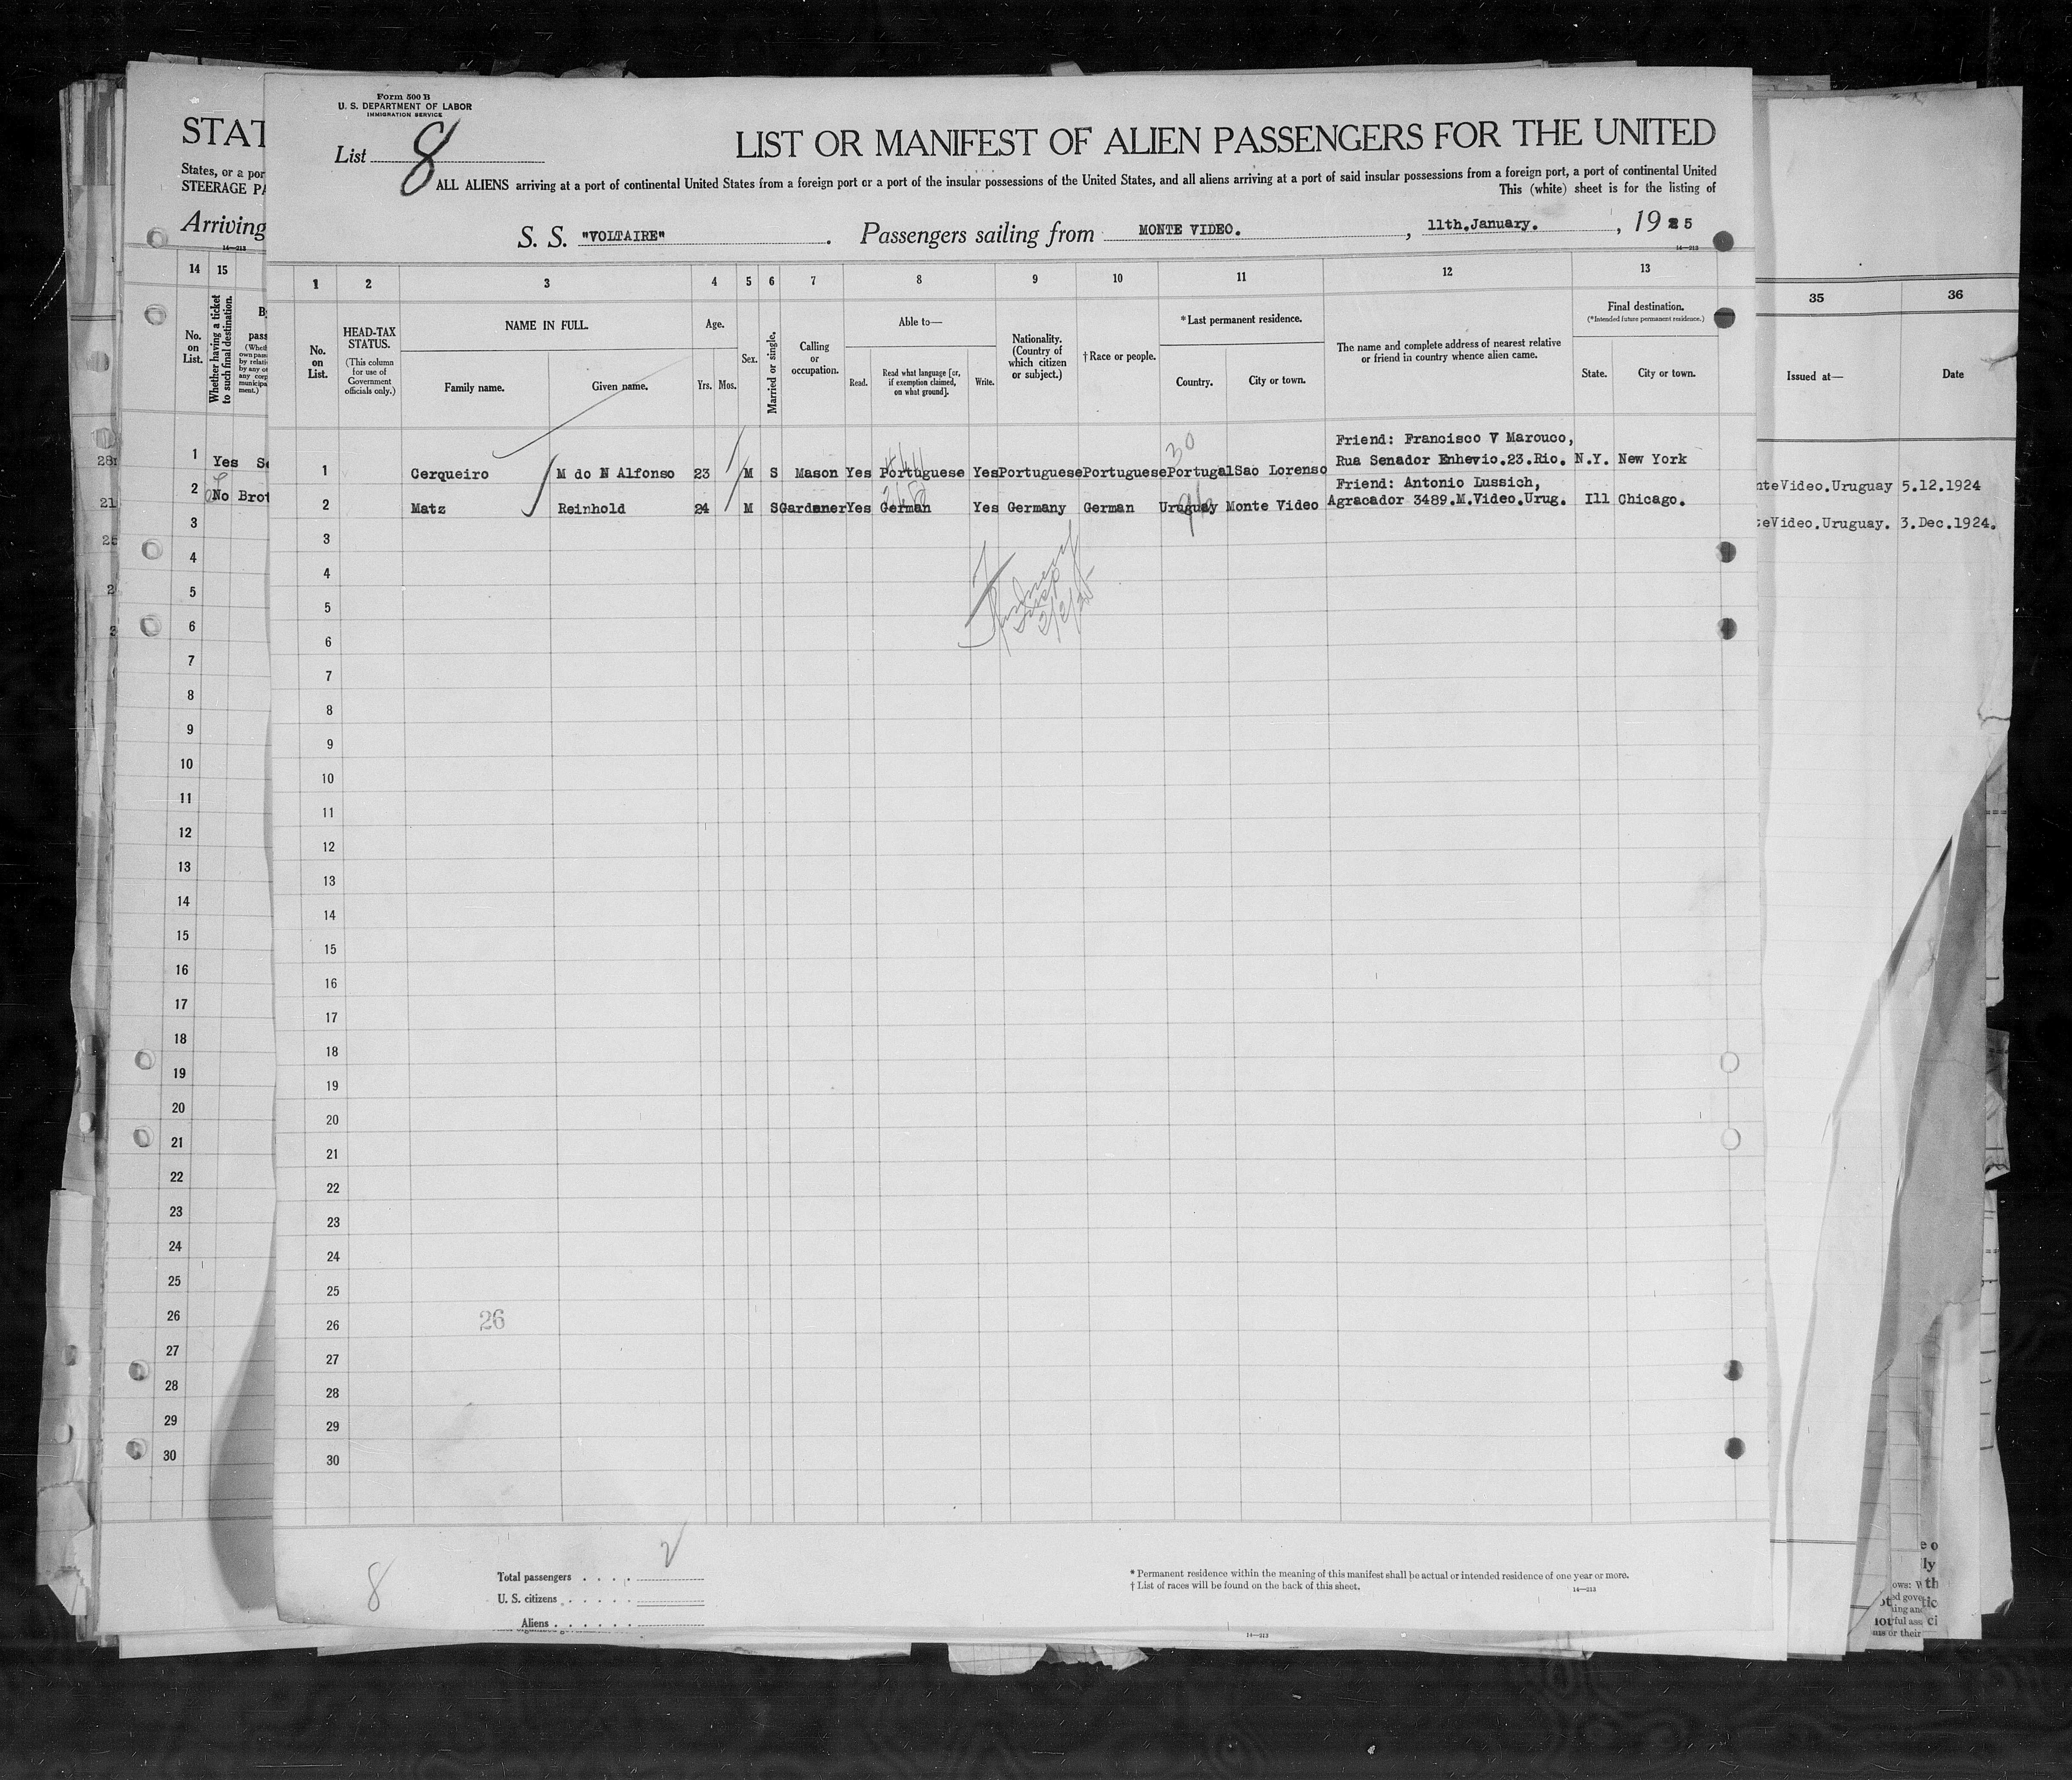 Form 500 B
U. S. DEPARTMENT OF LABOR
IMMIGRATION SERVICE
List 8
LIST OR MANIFEST OF ALIEN PASSENGERS FOR THE UNITED
ALL ALIENS arriving at a port of continental United States from a foreign port or a port of the insular possessions of the United States, and all aliens arriving at a port of said insular possessions from a foreign port, a port of continental United
This (white) sheet is for the listing of
S. S. "VOLTAIRE" . Passengers sailing from MONTE VIDEO. , 11th.January. , 1925
14—213
1 2 3 4 5 6 7 8 9 10 11 12 13
No. on List.
HEAD-TAX STATUS.
(This column for use of Government officials only.)
NAME IN FULL.
Family name.
Given name.
Age.
Yrs. Mos.
Sex.
Married or single.
Calling or occupation.
Able to—
Read.
Read what language [or, if exemption claimed, on what ground].
Write.
Nationality. (Country of which citizen or subject.)
† Race or people.
* Last permanent residence.
Country.
City or town.
The name and complete address of nearest relative or friend in country whence alien came.
Final destination.
(*Intended future permanent residence.)
State.
City or town.
30
Friend: Francisco V Marouco,
1 Cerqueiro M do N Alfonso 23 M S Mason Yes Portuguese Yes Portuguese Portuguese Portugal Sao Lorenso Rua Senador Enhevio.23.Rio. N.Y. New York
Friend: Antonio Lussich,
2 Matz Reinhold 24 M S Gardener Yes German Yes Germany German Uruguay Monte Video Agracador 3489.M.Video.Urug. Ill Chicago.
3
4
5
6
7
8
9
10
11
12
13
14
15
16
17
18
19
20
21
22
23
24
25
26 26
27
28
29
30
2
8
Total passengers
U. S. citizens
Aliens
* Permanent residence within the meaning of this manifest shall be actual or intended residence of one year or more.
† List of races will be found on the back of this sheet.
14—213
14—213
STAT
States, or a por
STEERAGE PA
Arriving
14—213
14 15
No. on List.
Whether having a ticket to such final destination.
1 Yes
2 No Brot
3
4
5
6
7
8
9
10
11
12
13
14
15
16
17
18
19
20
21
22
23
24
25
26
27
28
29
30
35 36
Issued at—
Date
nteVideo.Uruguay 5.12.1924
eVideo.Uruguay. 3.Dec.1924.